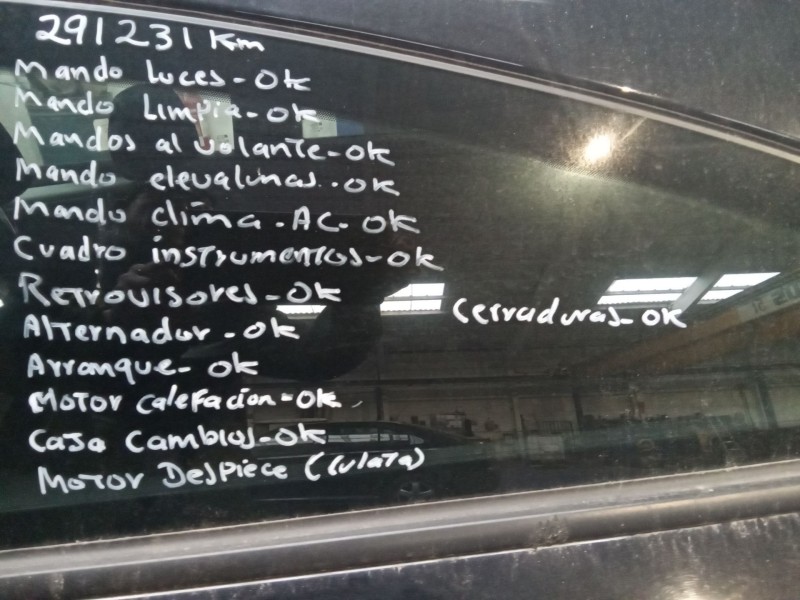 291231 Km
Mando luces - OK
Mando Limpia - OK
Mandos al volante - OK
Mando elevalunas.. OK
Mando clima - AC - OK
Cuadro instrumentos - OK
Retrovisores - OK
Cerraduras - OK
Alternador - OK
Arranque - OK
Motor calefacion - OK
Caja Cambios - OK
Motor Despiece (culata)